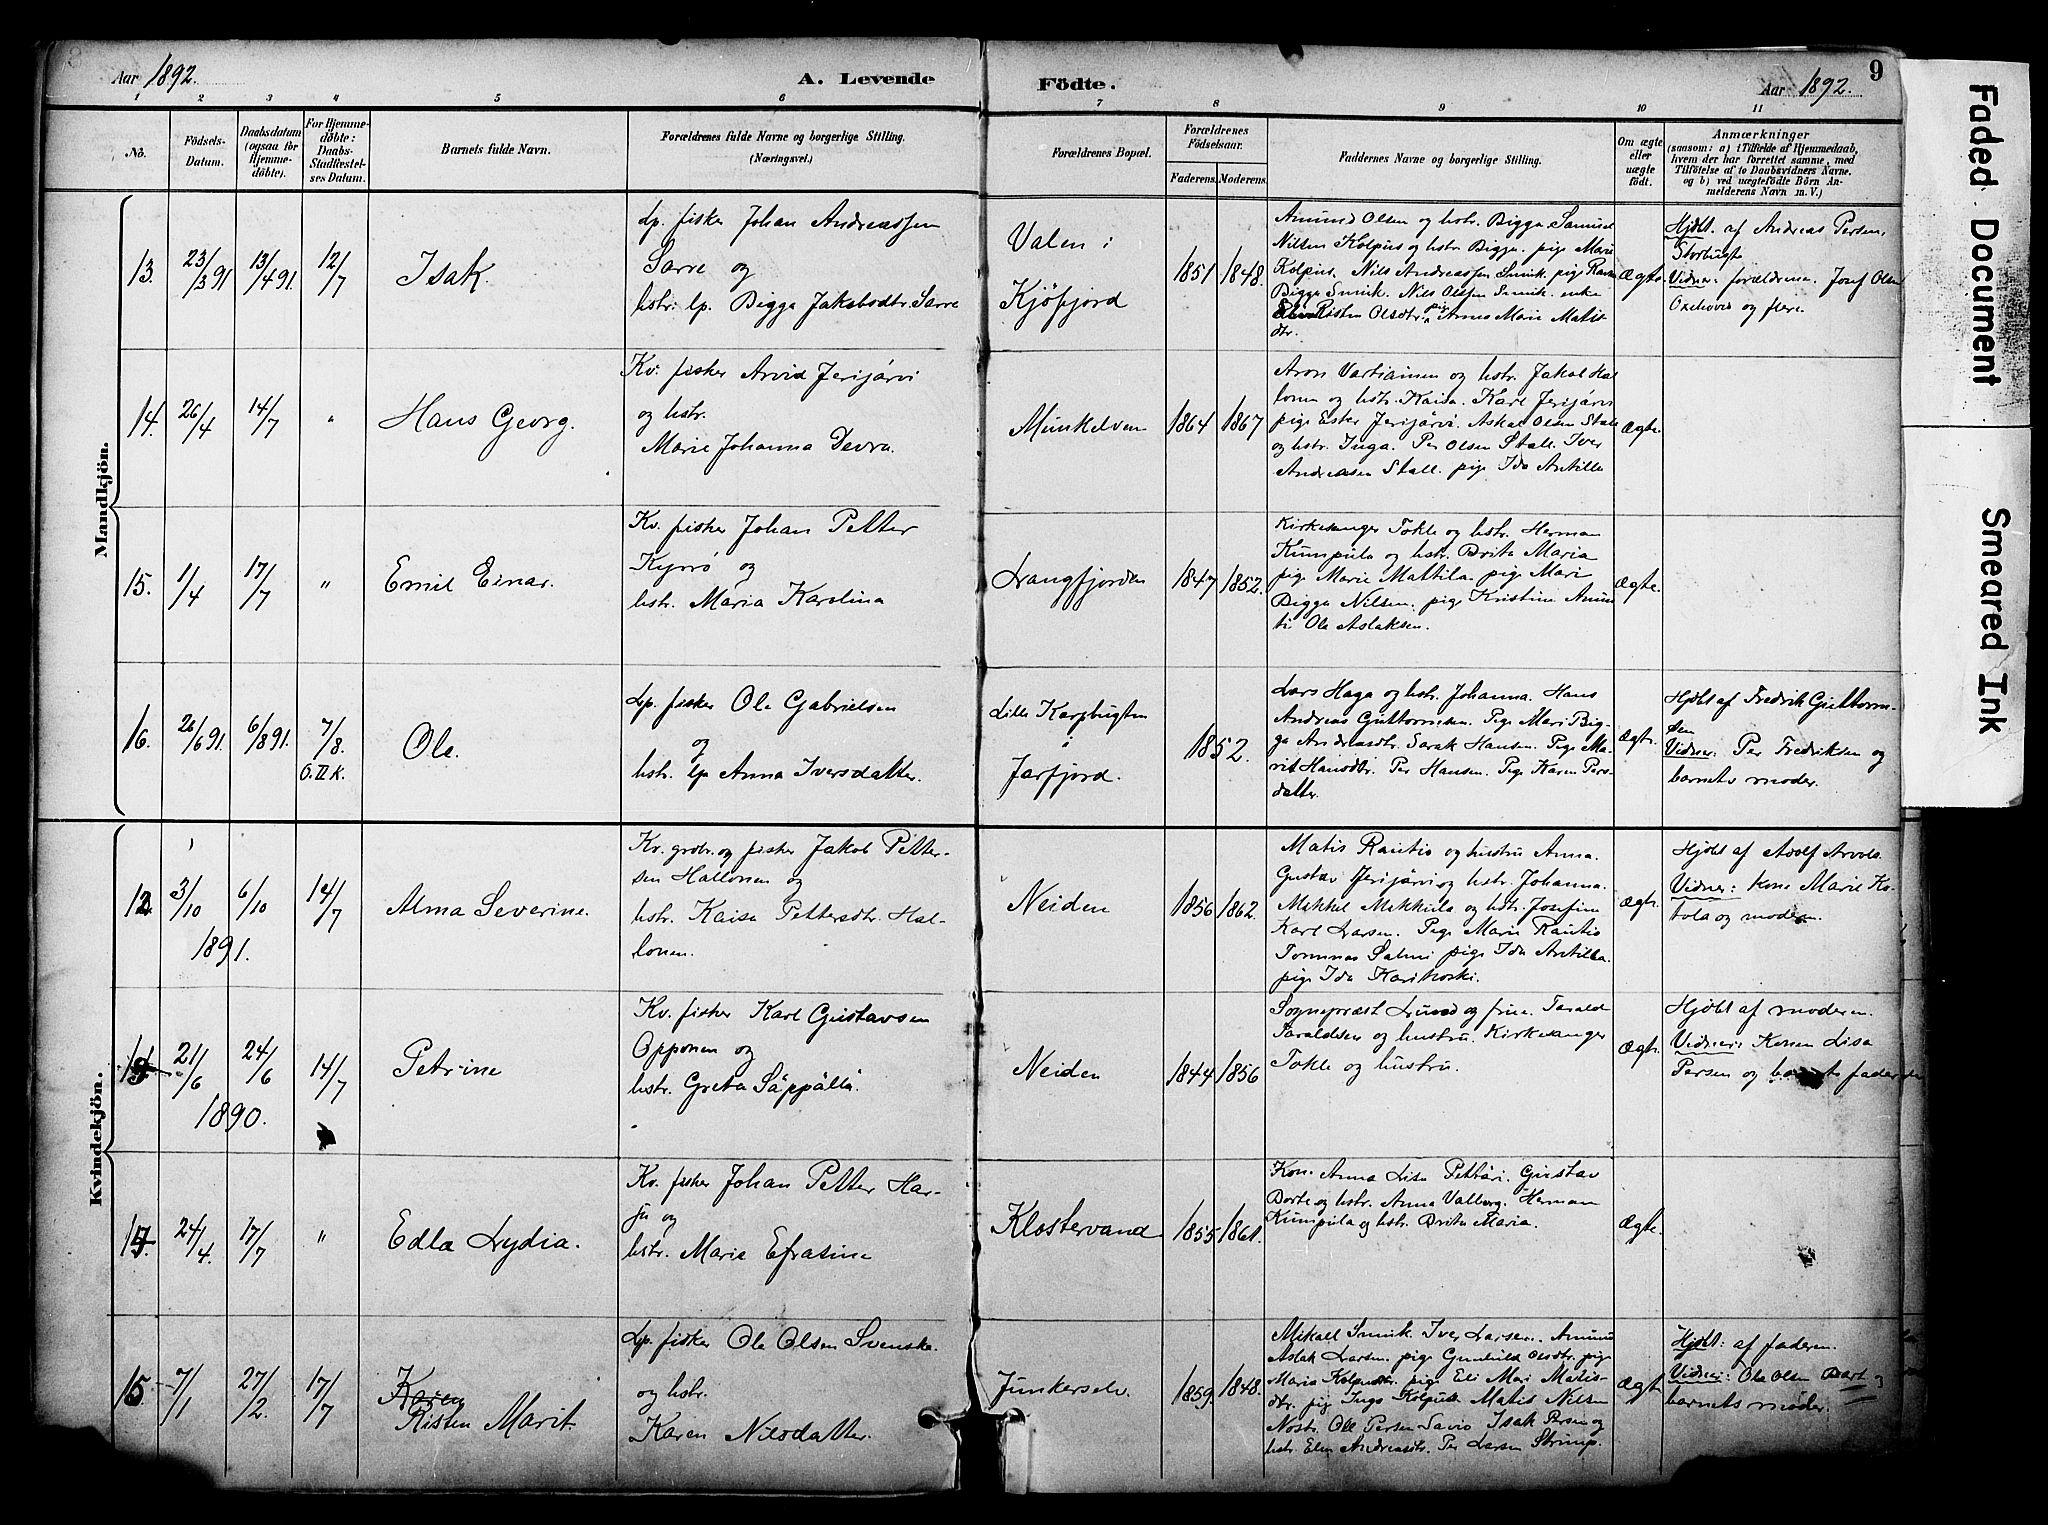 8
Aar 1892.
A. Levende
Födte.
Aar 1892.
9
1 2 3 4 5 6 7 8 9 10 11
No.
Födsels-
Datum.
Daabsdatum
(ogsaa for
Hjemme-
döbte).
For Hjemme-
döbte:
Daabs-
Stadfæstel-
ses Datum.
Barnets fulde Navn.
Forældrenes fulde Navne og borgerlige Stilling.
(Næringsvei.)
Forældrenes Bopæl.
Forældrenes
Födselsaar.
Faderens. Moderens.
Faddernes Navne og borgerlige Stilling.
Om ægte
eller
uægte
födt.
Anmærkninger
(saasom: a) i Tilfælde af Hjemmedaab,
hvem der har forrettet samme, med
Tilföielse af to Daabsvidners Navne.
og b) ved uægtefödte Börn An-
melderens Navn m. V.)
Mandkjön.
13. 23/3 91 13/4 91. 12/7
Isak.
Lp. fisker Johan Andreassen
Sarre og
hstr. lp. Bigga Jakobsdtr. Sarre
Valen i
Kjöfjord
1851 1848.
Amund Olsen og hstr. Bigga Samuel
Nilsen Kolpus og hstr Bigga. pige Marie
Kolpus. Nils Andreassen Smuk. pige Ravna
Bigga Smuk. Nils Olsen Smuk. enke
Risten Olsdtr. pig Anne Marie Matis
dtr.
Ægte
Hjdbt. af Andreas Persen,
Storbugt
Vidner: forældrene. Josef Olsen
og flere.
14. 26/4 14/7 "
Hans Georg.
Kv. fisker Arvid Jerijärvi
og hstr.
Marie Johanna
Munkelven
1864 1867
Aron Vartiainen og hstr. Jakob Hal
lonen og hstr. Kaisa. Karl Jerijärvi
pige Ester Jerijärvi. Askal Olsen Stall
og hstr. Inga. Per Olsen Stall. Iver
Andreasen Stall. pige Ida Antilla
Ægte.
15. 1/4 17/7 "
Emil Einar.
Kv. fisker Johan Petter
Kyrrö og
hstr. Maria Karolina
Langfjorden
1847 1852.
Kirkesanger Tokle og hstr. Herman
Kumpula og hstr. Brita Maria
pige Marie Mattila. pige Mari
Bigga Nilsen. pige Kristine Amun
ti Ole Aslaksen.
Ægte.
16. 26/6 91. 6/8 91. 7/8.
6. II. K.
Ole.
Lp. fisker Ole Gabrielsen
og
hstr. lp Anna Iversdatter.
Lille Karpbugten
i
Jarfjord.
1852.
Lars Haga og hstr. Johanna. Hans
Andreas Guttormsen. Pige Mari Big-
ga Andreasdtr. Sarak Hansen. Pige Ma-
rit Hansdtr. Per Hansen. Pige Karen Pers-
datter.
Ægte.
Hjdbt af Fredrik Guttorm-
sen
Vidner: Per Fredriksen og
barnets moder.
Kvindekjön.
12. 3/10 6/10 14/7
1891.
Alma Severine.
Kv. grdbr. og fisker Jakob Petter-
sen Hallonen og
hstr. Kaisa Pettersdtr. Hal-
lonen.
Neiden
1856 1862.
Matis Rautio og hustru Anna.
Gustav Jerijärvi og hstr. Johanna.
Mikkel Makkula og hstr. Josefine
Karl Larsen. Pige Marie Rautio
Tommas Salmi pige Ida Antilla.
pige Ida Karikoski.
Ægte.
Hjdbt af Adolf Arvola.
Vidner: Kone Marie Ko-
vola og moderen.
21/6 24/6 14/7
1890.
Petrine
Kv. fisker Karl Gustavsen
Opponen og
hstr. Greta Säppällä.
Neiden
1844 1856
Sognepræst Lund og frue. Tarald
Taraldsen og hustru. Kirkesanger
Tokle og hustru.
Ægte.
Hjdbt af moderen.
Vidner: Konen Lisa
Persen og barnets fader
24/4. 17/7 "
Edla Lydia.
Kv. fisker Johan Petter Har-
ju og
hstr. Marie Efrasine
Klostervand
1855 1861.
Kone Anna Lisa Pettäri. Gustav
Borte og hstr. Anna Valborg. Herman
Kumpula og hstr. Brita Maria.
Ægte.
15 7/1 27/2. 17/7
Karen
Risten Marit.
Lp. fisker Ole Olsen Svenske.
og hstr.
Karen Nilsdatter.
Junkerselv.
1859. 1848.
Mikael Smuk. Iver Larsen. Amund
Aslak Larsen. pige Gunhild Olsdtr. pige
Maria Kolpusdtr. pige Eli Mari Matis-
dtr. pig Inga Kolpus. Matis Nilsen
Nostr. Ole Persen Savio Isak Persen og
hstr. Elen Andreasdtr. Per Larsen Strimp.
Ægte
Hjdbt: af faderen.
Vidner: Ole Olsen Bart og
barnets moder.
Faded Document
Smeared Ink